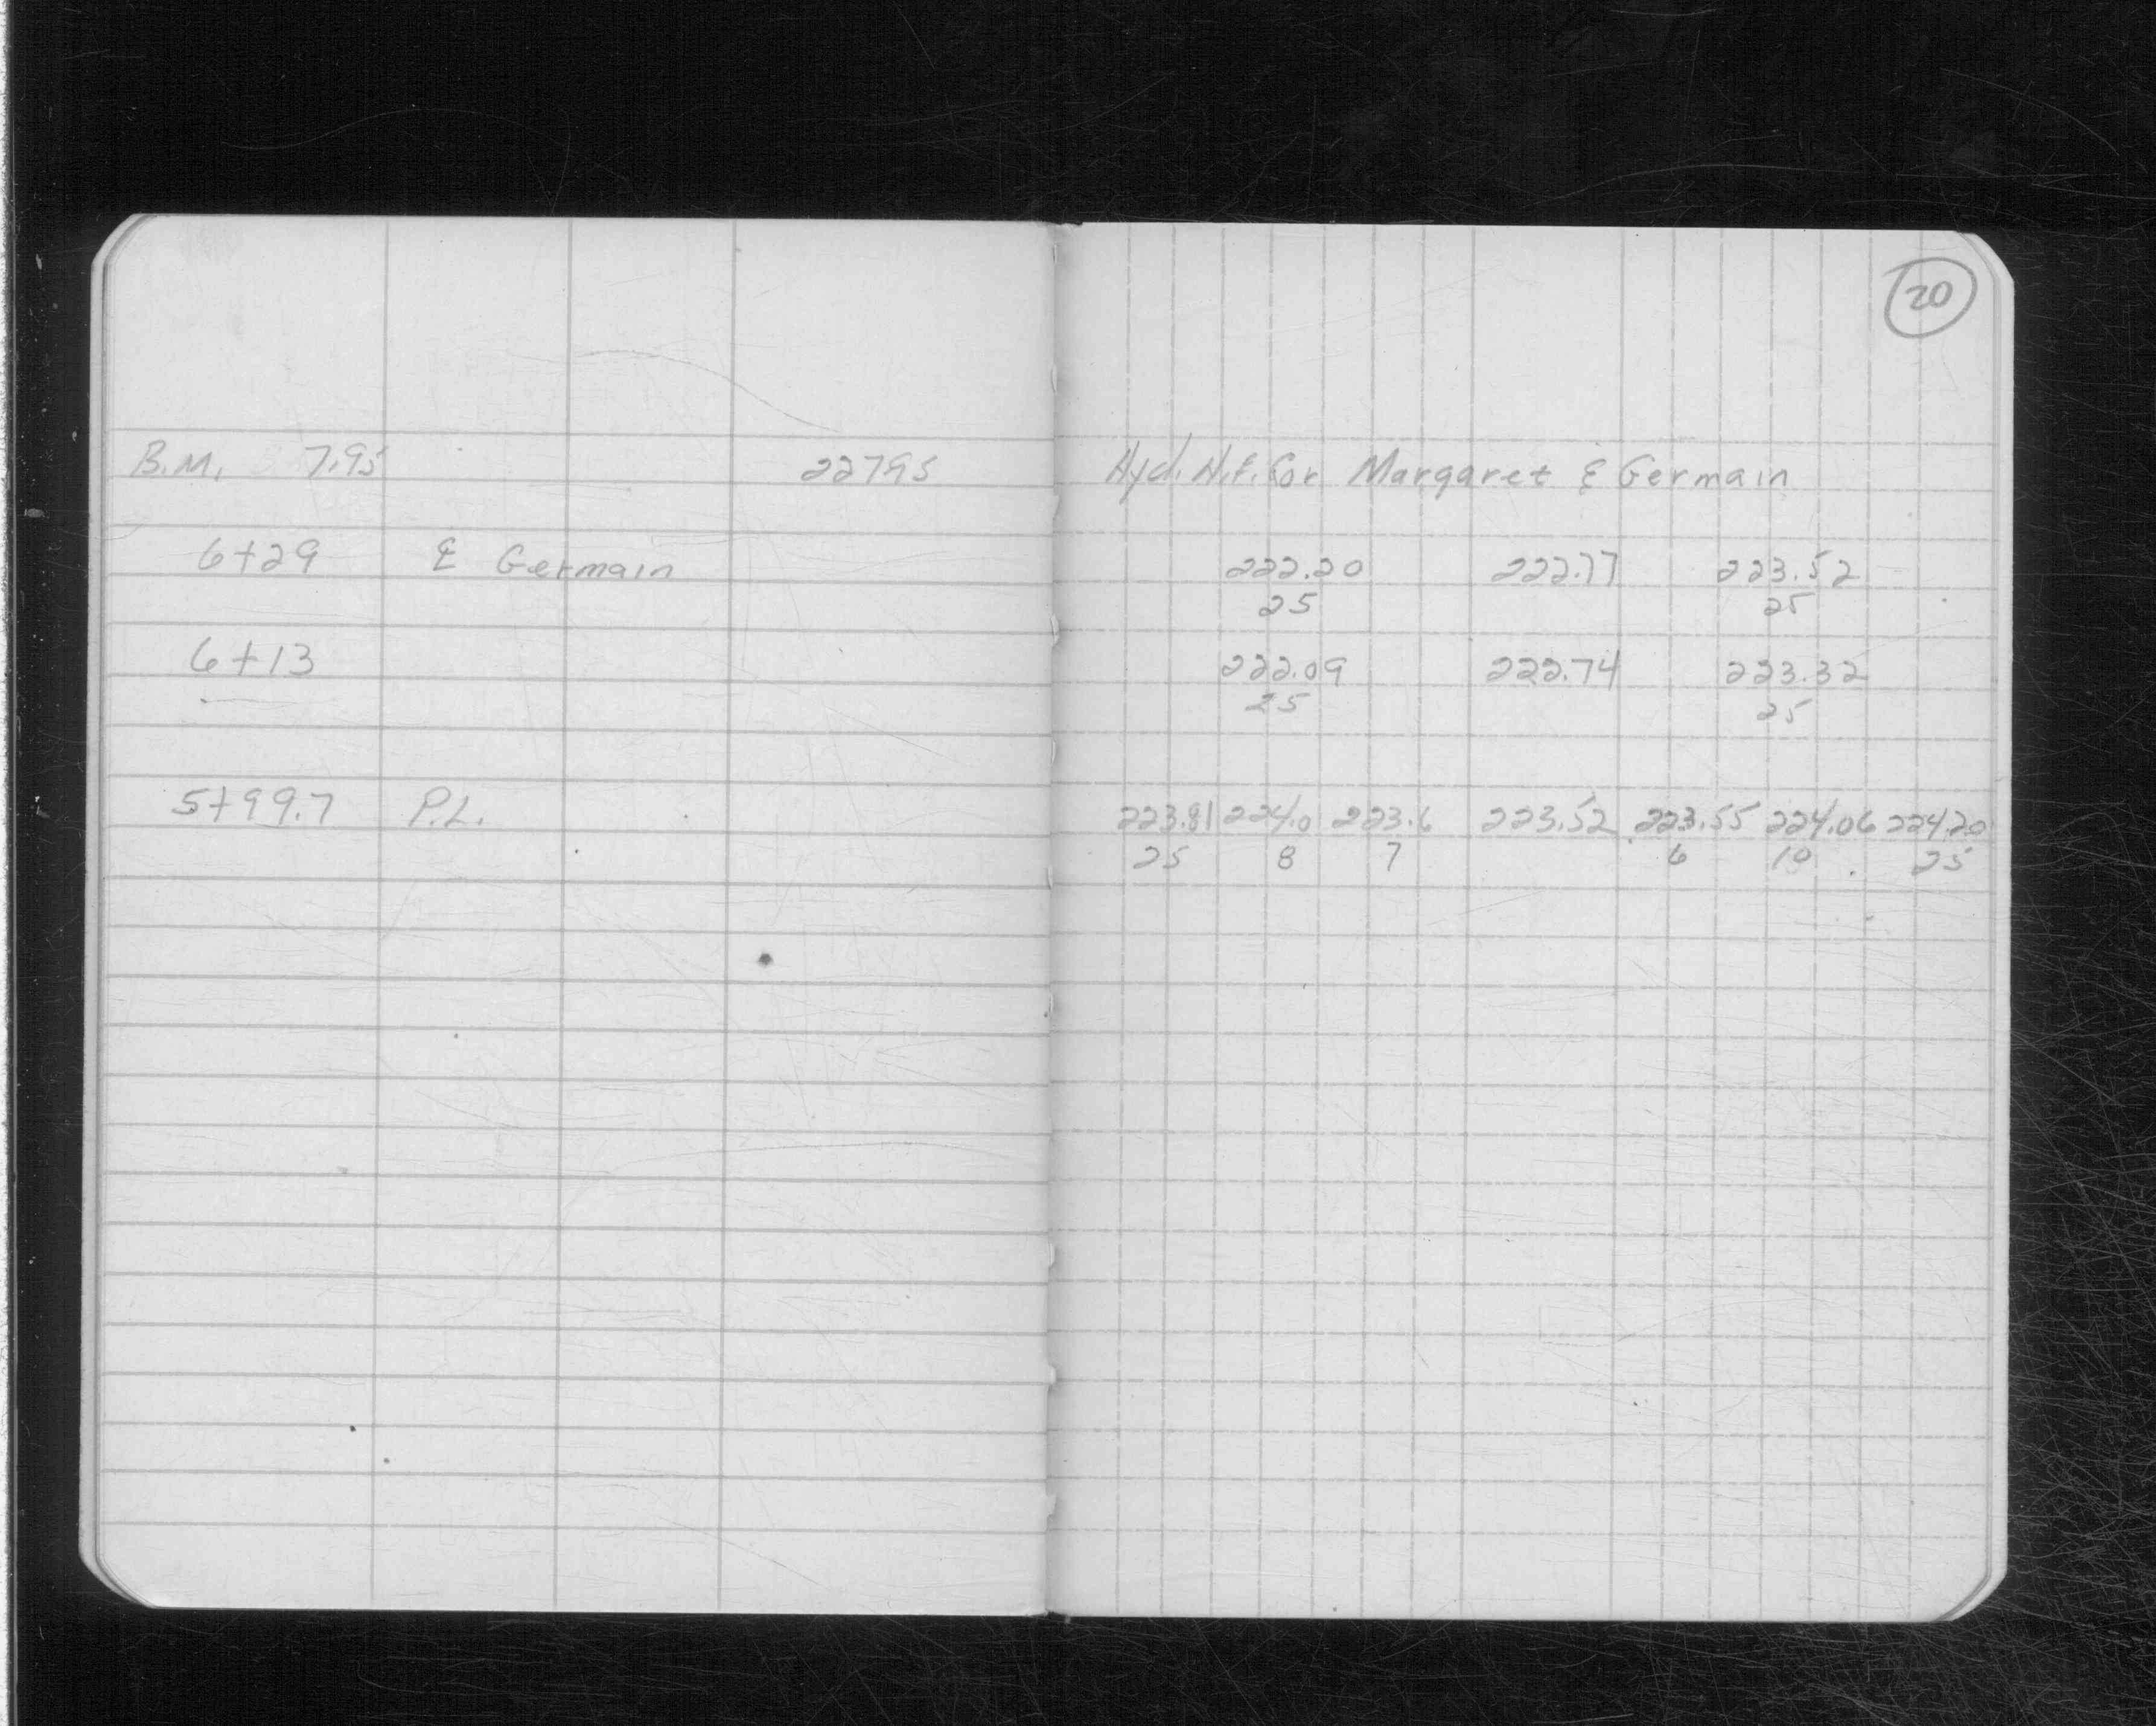 20
B.M. 7.95 22795 Hyd. N.E. Cor Margaret & Germain
6+29 ⅊ Germain 222.20 222.77 223.52
25 25
6+13 222.09 222.74 223.32
25 25
5+99.7 P.L. 223.81 224.0 223.6 223.52 223.55 224.06 224.20
25 8 7 6 10 25